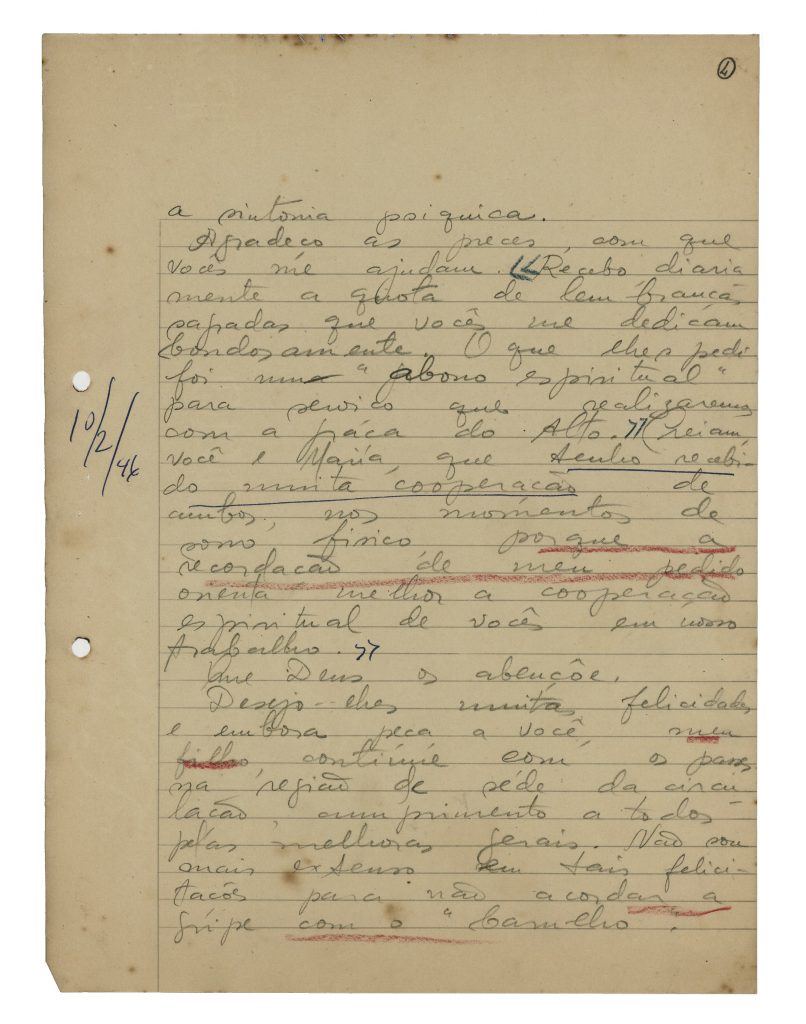 4
a sintonia psiquica.
Agradeço as preces, com que
vocês me ajudam. << Recebo diaria
mente a quota de lembranças
sagradas que vocês me dedicam
bondosamente. O que lhes pedi
foi um "abono espiritual"
para serviço que realizaremos
com a graça do Alto. >> Creiam,
você e Maria, que tenho recebi-
do muita cooperação de
ambos, nos momentos de
sono fisico porque a
recordação de meu pedido
orienta melhor a cooperação
espiritual de vocês em nosso
trabalho. >>
Que Deus os abençõe.
Desejo-lhes muitas felicidades
e embora peça a você, meu
filho continúe com os passes
na região de séde da circu
lação, cumprimento a todos
pelas melhoras gerais. Não sou
mais extenso em tais felici-
tações para não acordar a
gripe com o "barulho".
10/2/46